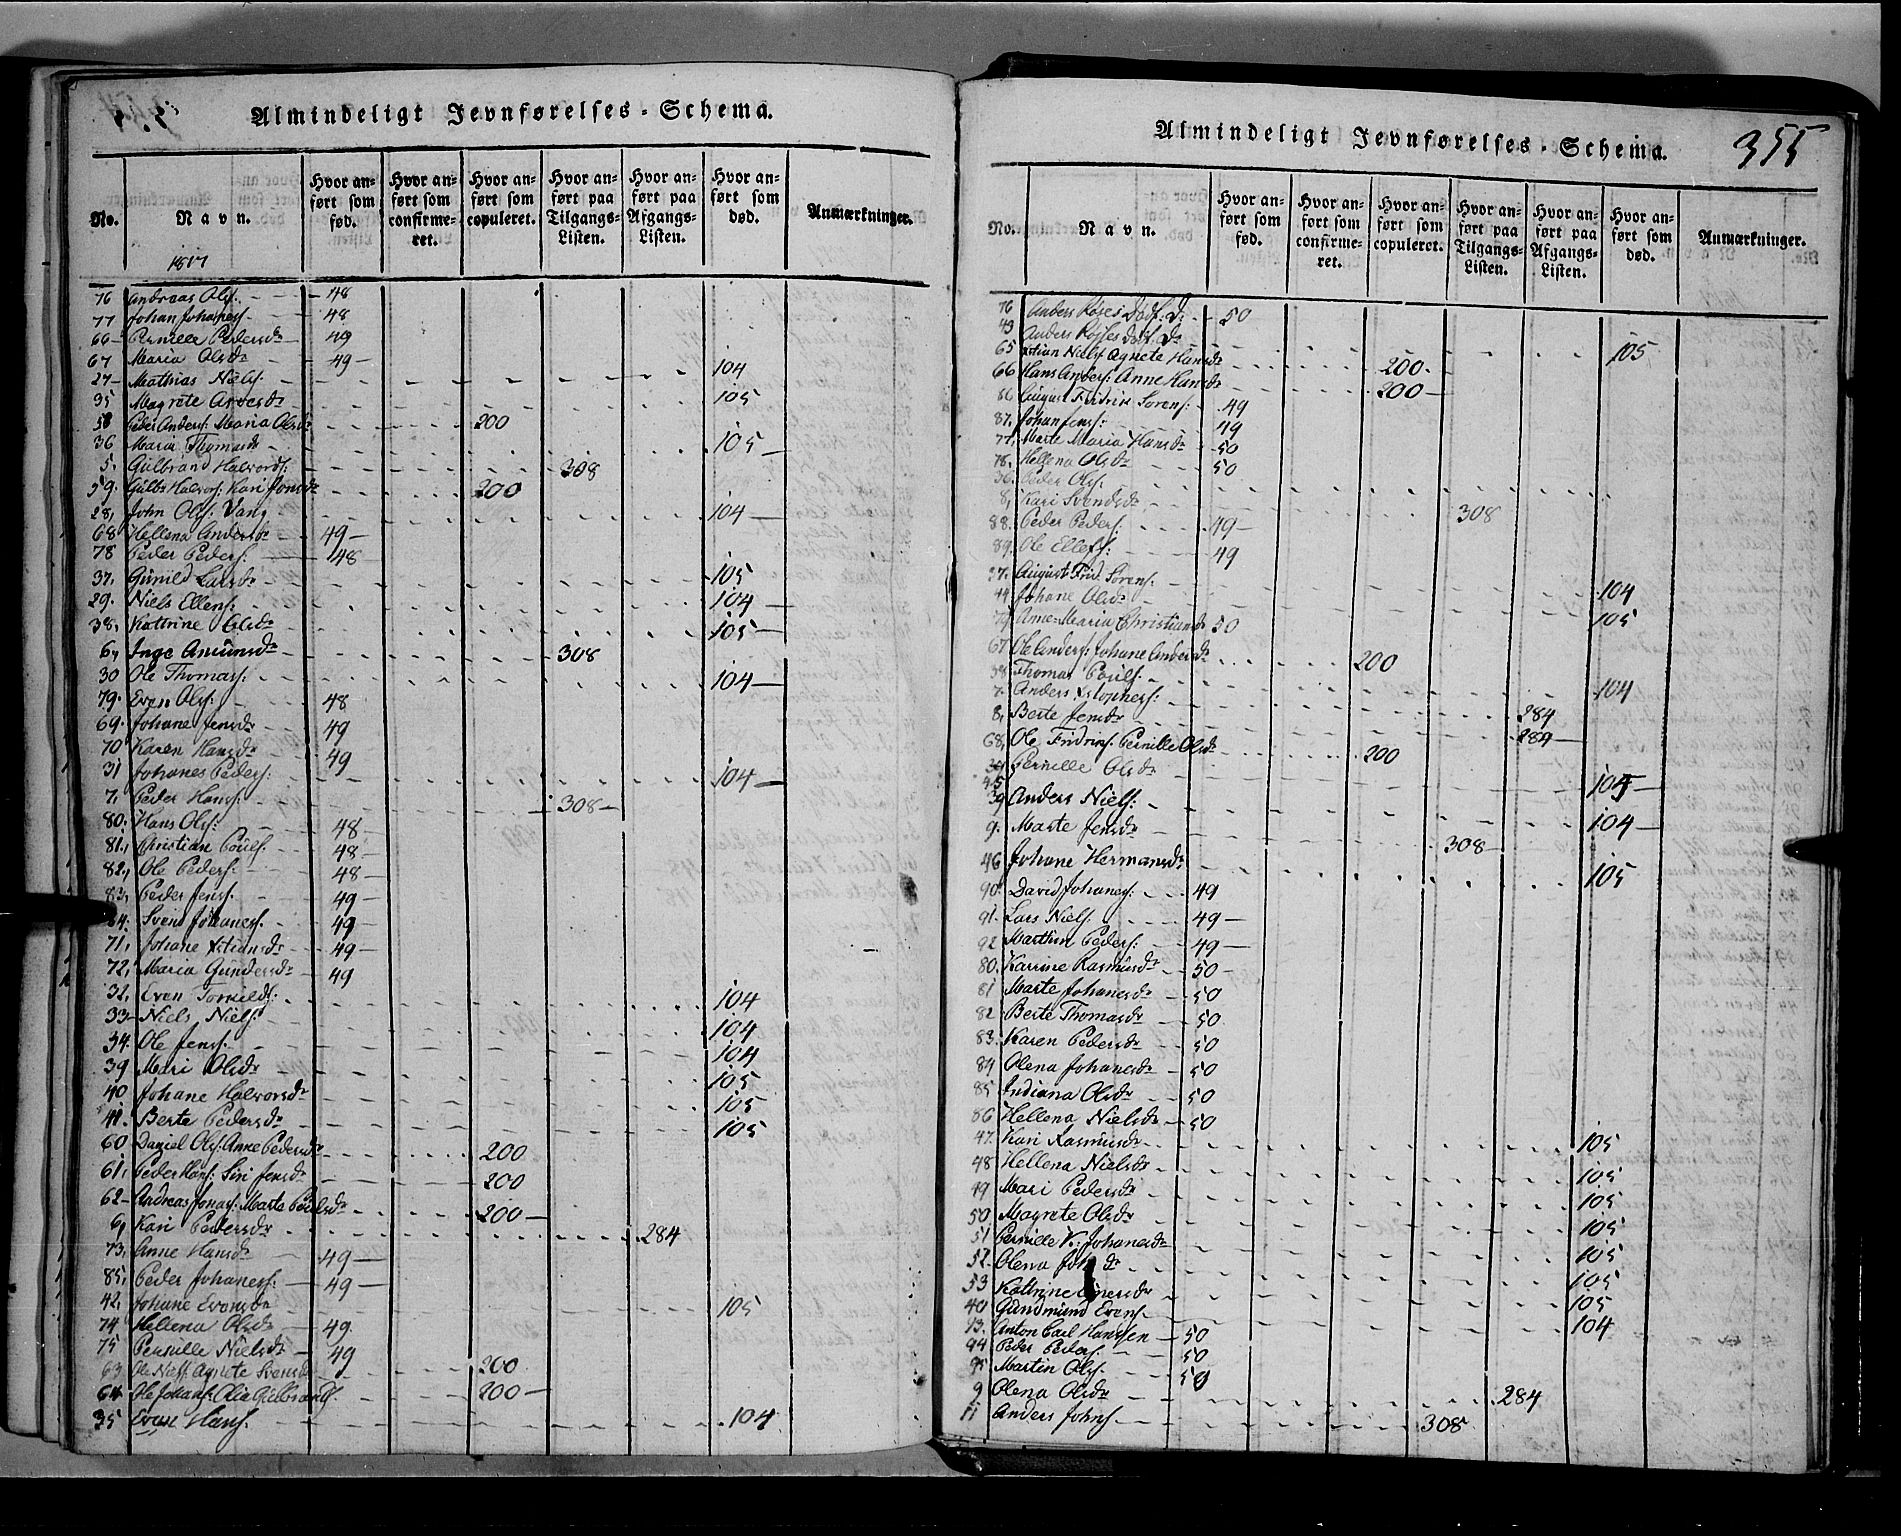 Almindeligt Jevnførelses-Schema.
No. Navn. Hvor anført som fød. Hvor anført som confirmeret. Hvor anført som copuleret. Hvor anført paa Tilgangs-Listen. Hvor anført paa Afgangs-Listen. Hvor anført som død. Anmærkninger.
1817
76 Andreas Ols. 48
77 Johan Johanes. 48
66 Pernille Pedersdr 49
67 Maria Olsdr 49
27 Mathias Niels. 104
35 Magrete Arvesdr 105
58 Peder Anders: Maria Olsdr 200
36 Maria Thomasdr 105
5. Gulbrand Halvords: 308
59. Gulbr Halvors: Kari Jensdr 200
28, John Ols. Vang 104
68 Hellena Andersdr 49
78 Peder Peders: 48
37, Gunild Larsdr 105
29. Niels Ellens: 104
38, Kattrine Olsdr 105
6, Inge Amunsdr 308
30 Ole Thomas: 104
79. Even Ols: 48
69. Johane Jensdr 49
70 Karen Hansdr 49
31 Johanes Peders: 104
7, Peder Hans: 308
80. Hans Ols: 48
81, Christian Pouls. 48
82, Ole Peders: 48
83, Peder Jens. 49
84. Svend Johanes. 49
71, Johane Xtiansdr 49
72, Maria Gundersdr 49
32, Even Torkilds. 104
33 Niels Niels. 104
34. Ole Jens. 104
39 Mari Olsdr 105
40 Johane Halvorsdr 105
41. Berte Pedersdr 105
60 Daniel Ols: Anne Pedersdr 200
61, Peder Hans: Siri Jensdr 200
62 Andreas Jonas: Marte Poulsdr 200
6, Kari Pedersdr 284
73, Anne Hansdr 49
85, Peder Johanes: 49
42, Johane Evensdr 105
74 Hellena Olsdr 49
75 Pernille Nielsdr 49
63 Ole Niels. Agnete Svensdr 200
64 Ole Johans: Olia Gulbrands. 200
35 Even Hans. 104
Almindeligt Jevnførelses-Schema.
355
No. Navn. Hvor anført som fød. Hvor anført som confirmeret. Hvor anført som copuleret. Hvor anført paa Tilgangs-Listen. Hvor anført paa Afgangs-Listen. Hvor anført som død. Anmærkninger.
76 Anders Kjøses Dødf. D: 50
43 Anders Kjøses Dødf. Dr 105
65 Xtian Niels. Agnete Hansdr 200
66 Hans Anders: Anne Hansdr 200
86 August Fridrik Sørens: 49
87. Johan Jens: 49
77, Marte Maria Hansdr 50
78, Hellena Olsdr 50
36. Peder Ols.
8, Kari Svendsdr 308
88. Peder Peders: 49
89. Ole Ellefs: 49
37. August Frid. Sørens.
44 Johane Olsdr 104
79 Anne Maria Christiansdr 50 105
67 Ole Anders: Johane Andersdr 200
38 Thomas Pouls. 104
7. Anders Xtophers: 284
8, Berte Jensdr 284
68, Ole Fridriks. Pernille Olsdr 200
45 Pernille Olsdr 105
39 Anders Niels: 104
9. Marte Jensdr 308
46 Johane Hermansdr 105
90. David Johanes: 49
91. Lars Niels. 49
92 Marthin Peders: 49
80. Karrine Rasmusdr 50
81 Marte Johanesdr 50
82 Berte Thomasdr 50
83. Karen Pedersdr 50
84 Olena Johanesdr 50
85 Indiana Olsdr 50
86 Hellena Nielsdr 50
47. Kari Rasmusdr 105
48 Hellena Nielsdr 105
49 Mari Pedersdr 105
50 Magrete Olsdr 105
51 Pernille K. Johanesdr 105
52. Olena Joh dr 105
53 Kattrine 105
40 Gundmund Evens. 104
13. Anton Carl Hanssen 50
94 Peder Peders. 50
95 Martin Ols. 50
9 Olena Olsdr 284
11 Anders Johns. 308